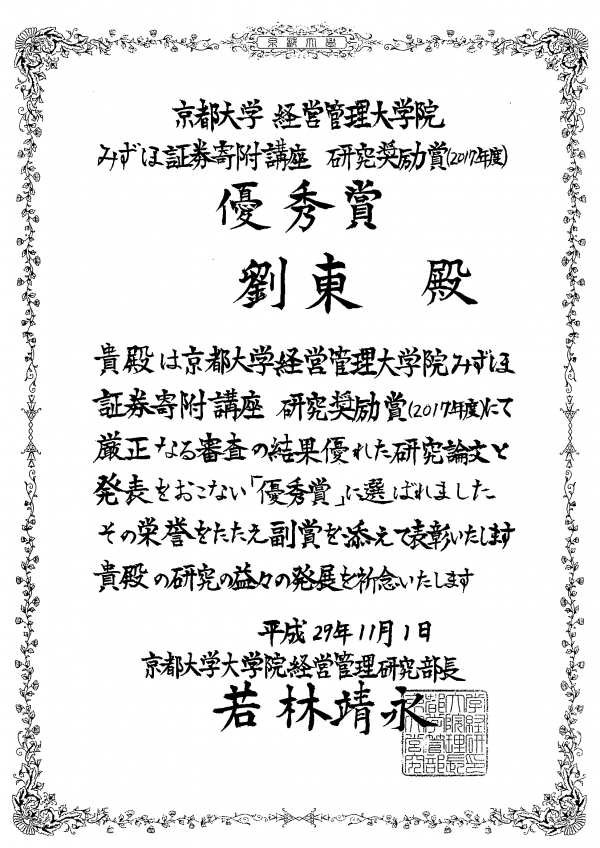 京都大学
京都大学 経営管理大学院
みずほ証券寄附講座 研究奨励賞(2017年度)
優秀賞
劉東 殿
貴殿は京都大学経営管理大学院みずほ
証券寄附講座 研究奨励賞(2017年度)にて
厳正なる審査の結果優れた研究論文と
発表をおこない「優秀賞」に選ばれました
その栄誉をたたえ副賞を添えて表彰いたします
貴殿の研究の益々の発展を祈念いたします
平成29年11月1日
京都大学大学院経営管理研究部長
若林靖永